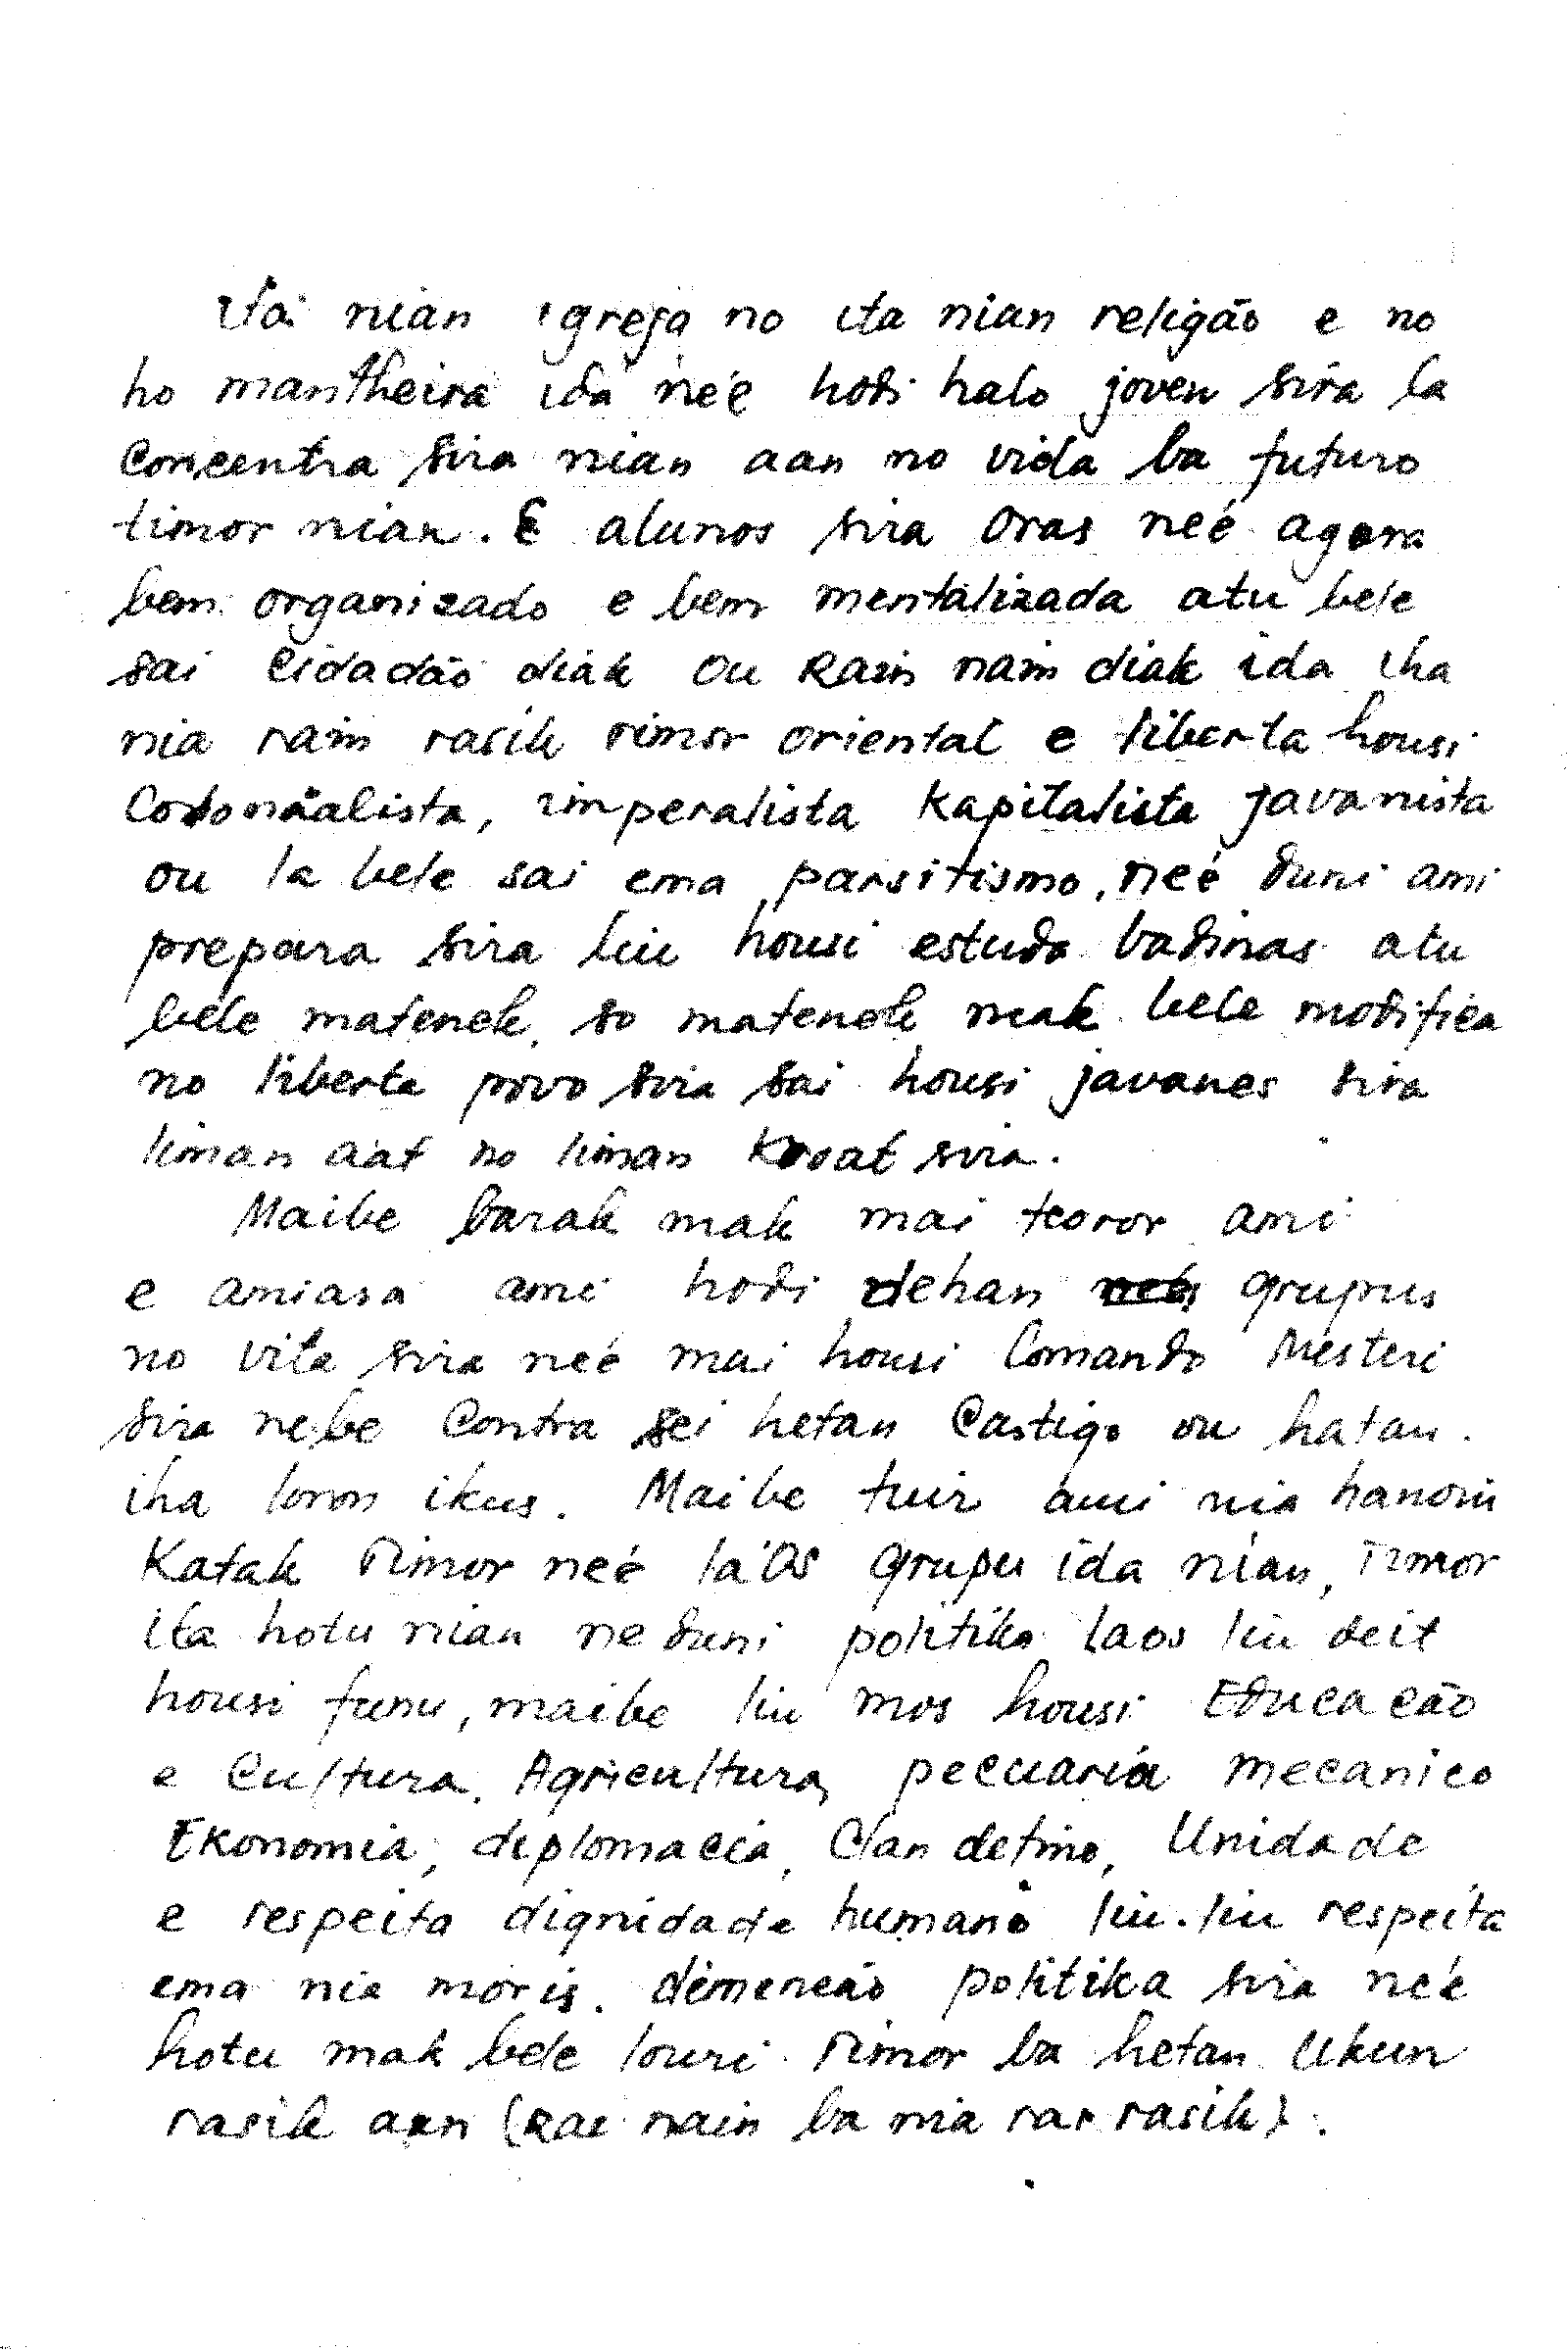 ita nian igreja no ita nian religão e no
ho mantheira ida neé hodi halo joven sira la
concentra sira nian aan no vida ba futuro
timor nian. E alunos sira oras neé agora
bem organizado e bem mentalizada atu bele
sai cidadão diak ou Rain nain diak ida iha
nia rain rasik Timor oriental e liberta housi
Colonialista, imperalista kapitalista javanista
ou la bele sai ema parsitismo, neé duni ami
prepara sira liu housi estuda badinas atu
bele matenek, so matenek mak bele modifica
no liberta povo sira sai housi javanes sira
liman aat no liman kroat sira.
Maibe barak mak mai teoror ami
e amiasa ami hodi dehan grupus
no vita sira neé mai housi Comando Mesteri
sira nebe Contra sei hetan Castigo ou hatan.
iha loron ikus. Maibe tuir ami nia hanoin
Katak Timor neé la'os grupu ida nian, Timor
ita hotu nian neduni politika laos liu deit
housi funu, maibe liu mos housi Educacão
e Cultura, Agricultura, pecuaria mecanico
Ekonomia, diplomacia, Clandetino, Unidade
e respeita dignidade humano liu-liu respeita
ema nia moris. dimencão politika sira neé
hotu mak bele louri Timor ba hetan Ukun
rasik aan (Rai nain ba nia rai rasik).